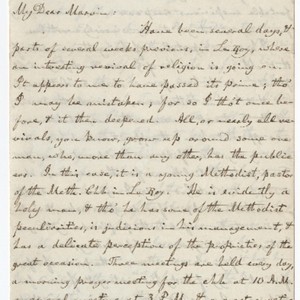 My Dear Marvin:
Have been several days, &
parts of several weeks previous, in Le Roy, where
an interesting revival of religion is going on.
It appears to me to have passed its prime; tho'
I may be mistaken; for so I that once be-
fore, & it then deepened. All, or nearly all re-
vivals, you know, grow up around some one
man, who, more than any other, has the public
ear. In this case, it is a young Methodist, pastor
of the Meth. Chh in Le Roy. He is evidently a
holy man, & tho' he has some of the Methodist
peculiarities, is judicious in his management, &
has a delicate perception of the proprieties of the
great occasion. Three meetings are held every day,
a morning prayer meeting for the chh at 10 A.M.
at 3 P.M.